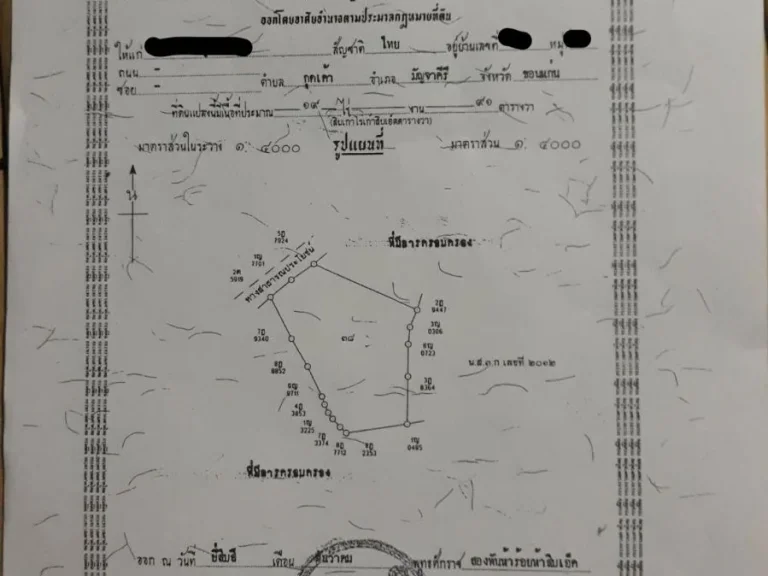 ออกโดยอาศัยอำนาจตามประมวลกฎหมายที่ดิน
ให้แก่ สัญชาติ ไทย อยู่บ้านเลขที่ หมู่
ถนน - ตำบล กุดเค้า อำเภอ มัญจาคีรี จังหวัด ขอนแก่น
ซอย -
ที่ดินแปลงนี้มีเนื้อที่ประมาณ ๑๙ ไร่ - งาน ๙๑ ตารางวา
(สิบเก้าไร่เก้าสิบเอ็ดตารางวา)
มาตราส่วนในระวาง ๑: ๔๐๐๐ รูปแผนที่ มาตราส่วน ๑: ๔๐๐๐
น
ที่มีการครอบครอง
5ฎ
7924
1ญ
7701
2ต
5919
ทางสาธารณประโยชน์
2ฎ
9447
3ญ
0306
6ญ
0723
3ฎ
8364
1ญ
0485
7ฎ
9340
8ฎ
8852
6ญ
9711
4ฎ
3853
1ญ
3225
7ฎ
2374
8ฎ
7713
8ฎ
2353
๓๘
น.ส.๓ ก เลขที่ ๒๐๑๒
ที่มีการครอบครอง
ออก ณ วันที่ ยี่สิบสี่ เดือน ธันวาคม พุทธศักราช สองพันห้าร้อยห้าสิบเอ็ด